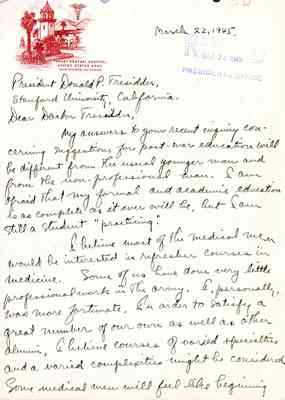 March 22, 1945.
GENERAL HOSPITAL
UNITED STATES ARMY
PRESIDENT'S OFFICE
President Donald P. Tresidder,
Stanford University, California.
Dear Doctor Tresidder,
My answers to your recent inquiry con-
cerning suggestions for post-war education will
be different from the usual younger man and
from the non-professional man. I am
afraid that my formal and academic education
is as complete as it ever will be, but I am
still a student "practicing."
I believe most of the medical men
would be interested in refresher courses in
medicine. Some of us have done very little
professional work in the army. I, personally,
was more fortunate. In order to satisfy a
great number of our own as well as other
alumni, I believe courses of varied specialties
and a varied complexities might be considered.
Some medical men will feel like beginning